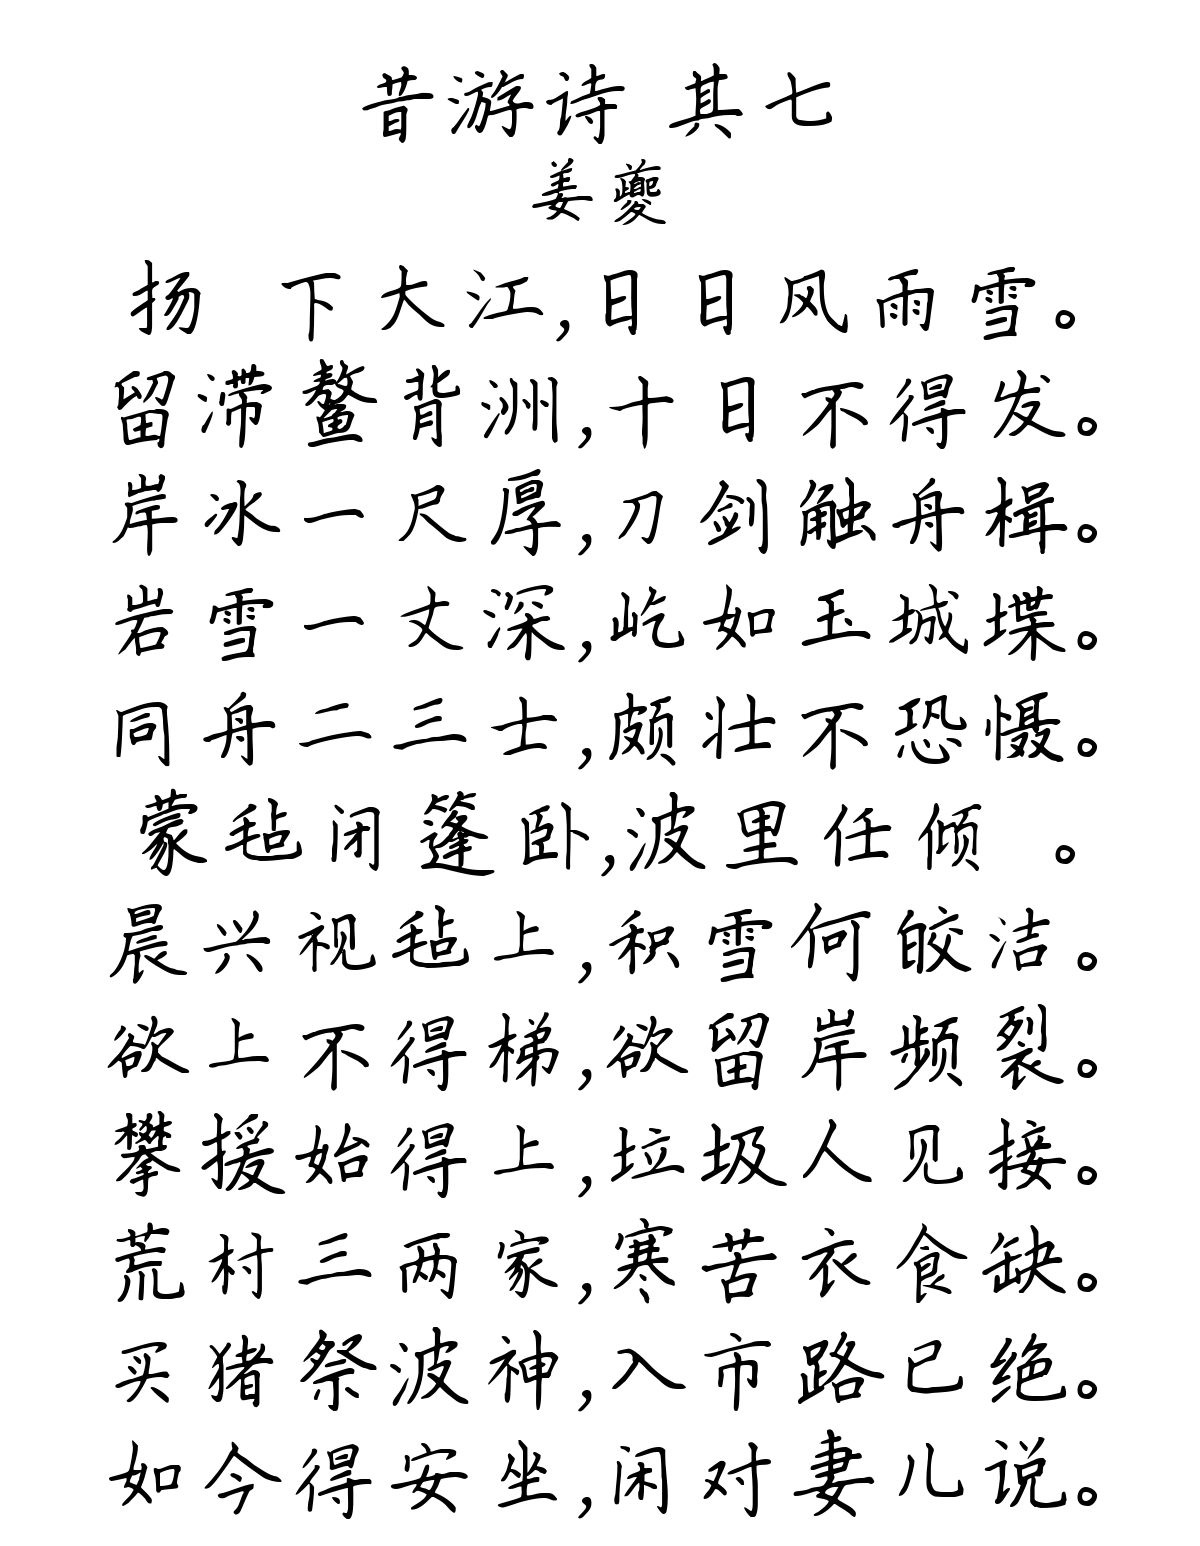 昔游诗 其七
姜夔
扬 下大江,日日风雨雪。
留滞鳌背洲,十日不得发。
岸冰一尺厚,刀剑触舟楫。
岩雪一丈深,屹如玉城堞。
同舟二三士,颇壮不恐慑。
蒙毡闭篷卧,波里任倾 。
晨兴视毡上,积雪何皎洁。
欲上不得梯,欲留岸频裂。
攀援始得上,垃圾人见接。
荒村三两家,寒苦衣食缺。
买猪祭波神,入市路已绝。
如今得安坐,闲对妻儿说。